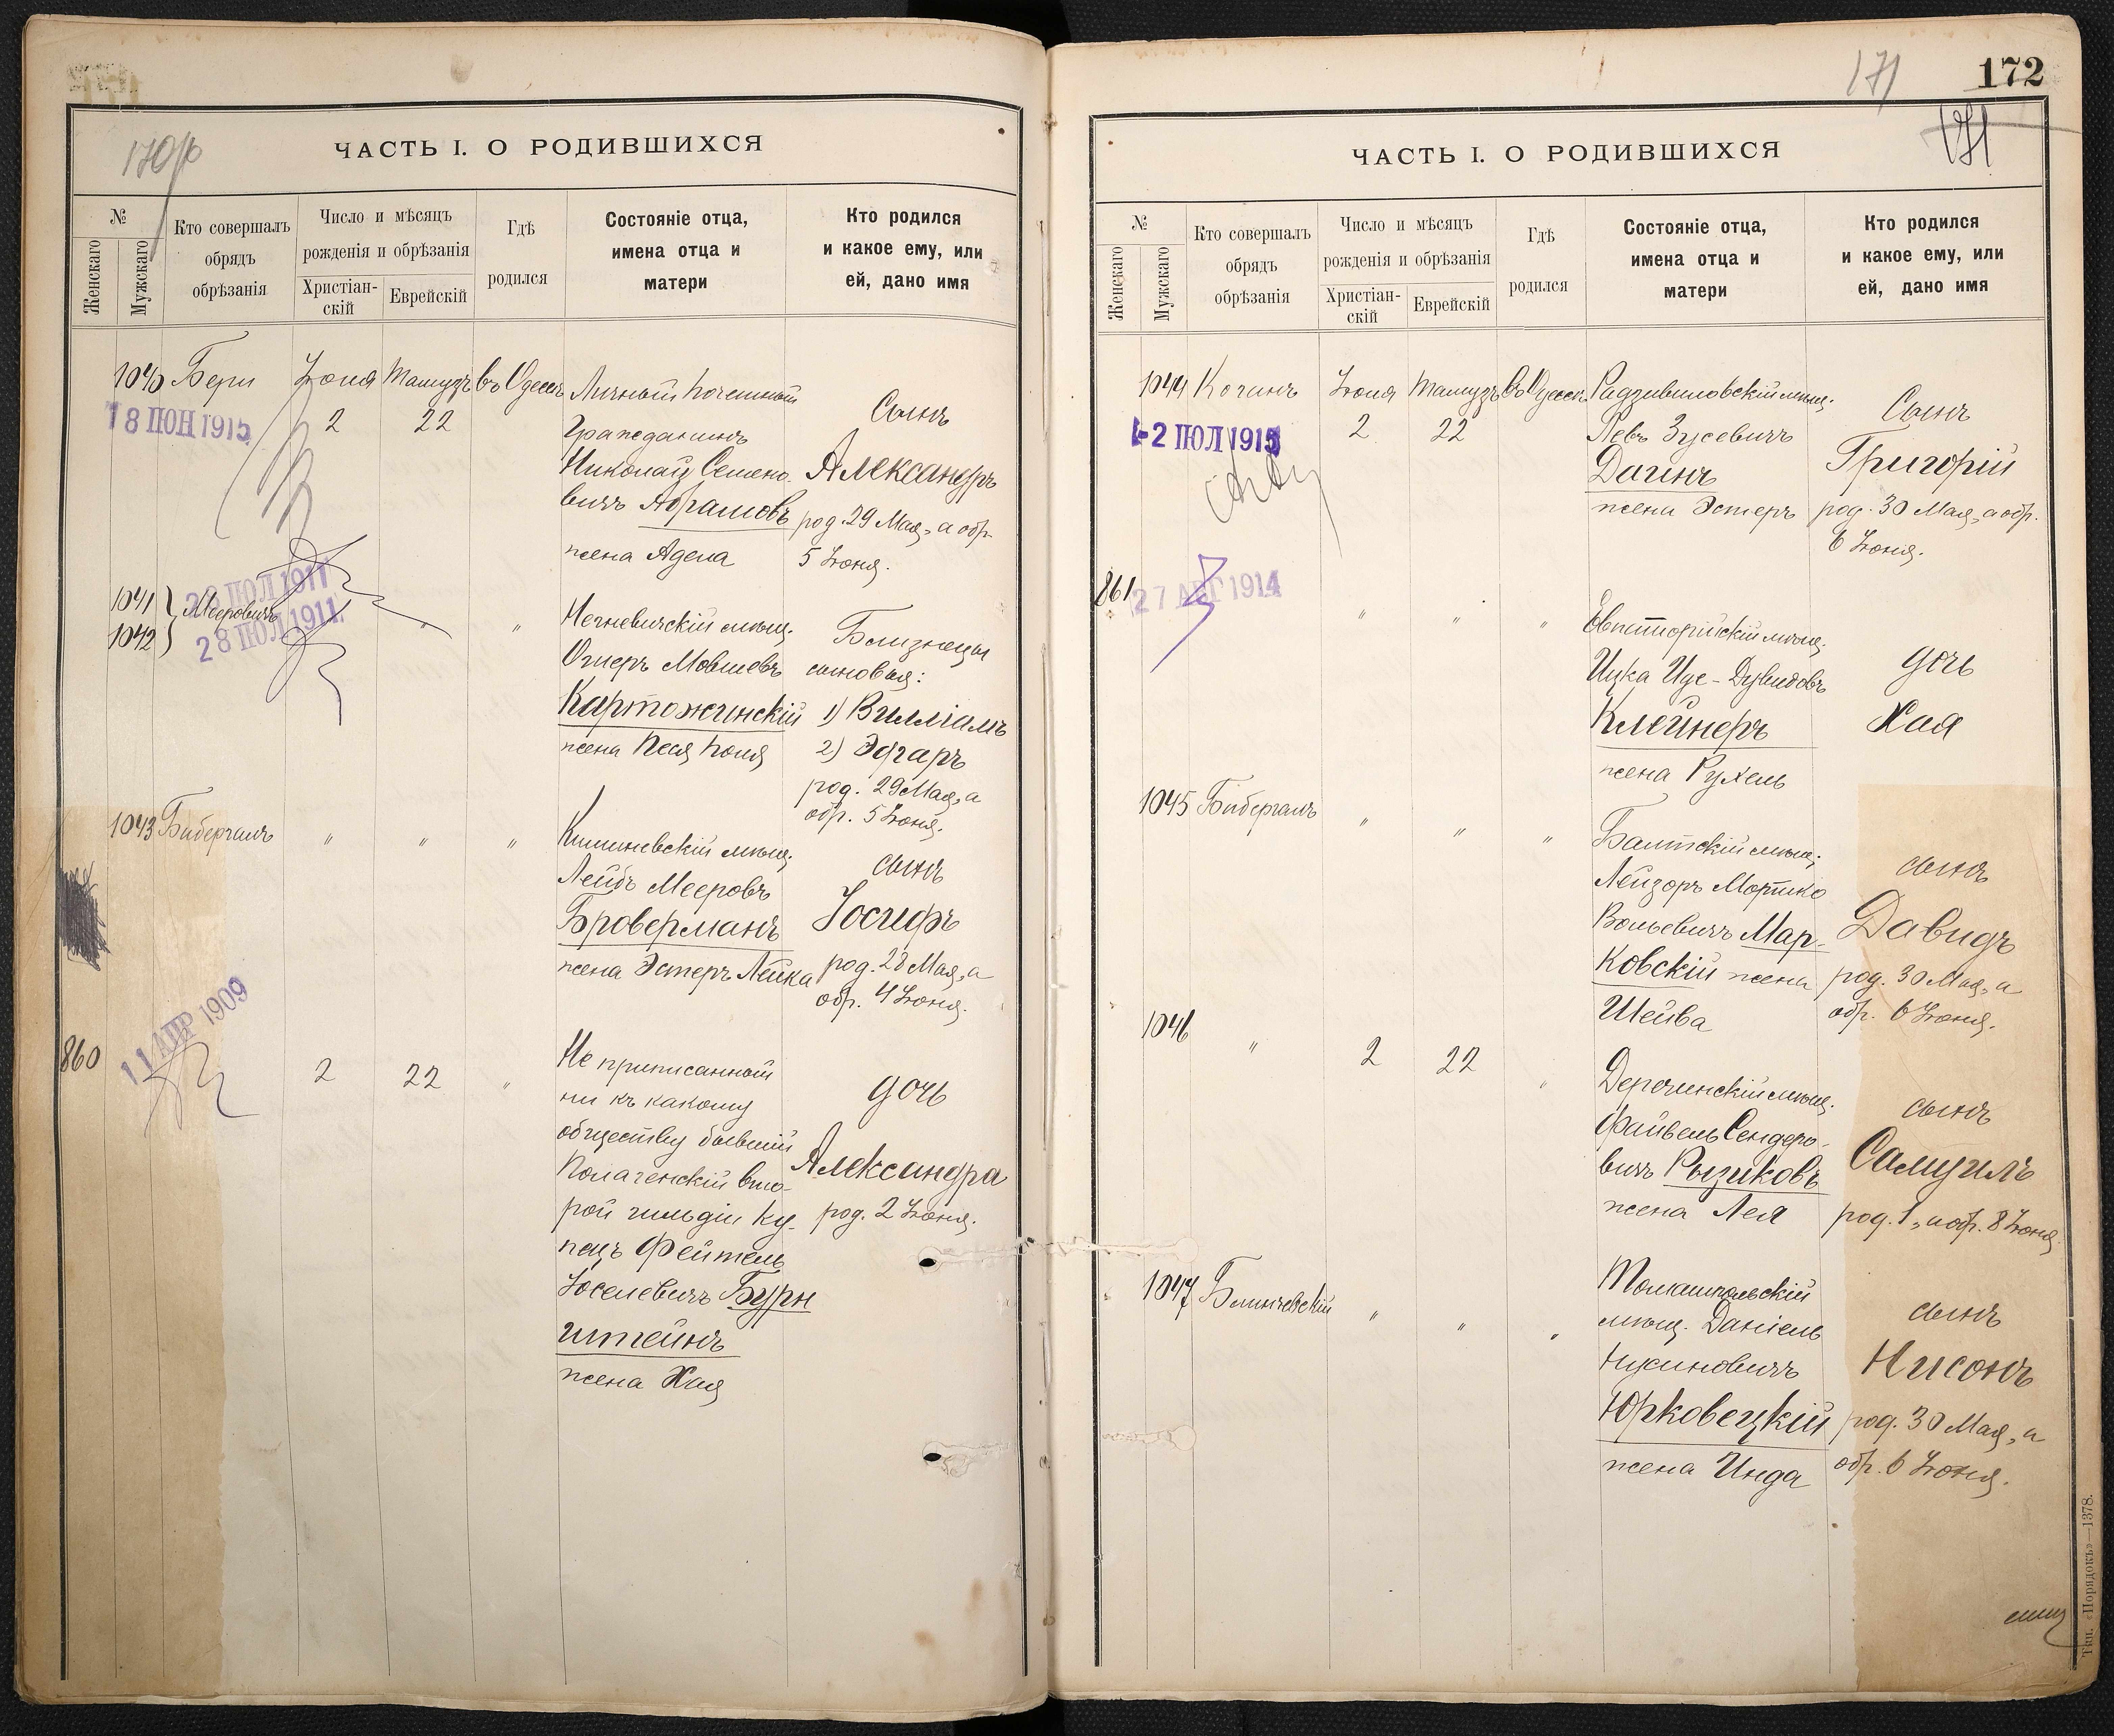 170/б
ЧАСТЬ I. О РОДИВШИХСЯ
№
Женскаго
Мужскаго
Кто совершалъ
обрядъ
обрѣзанія
Число и мѣсяцъ
рожденія и обрѣзанія
Христіан-
скій
Еврейскій
Гдѣ
родился
Состояніе отца,
имена отца и
матери
Кто родился
и какое ему, или
ей, дано имя
1040 Бери Іюня Тамузъ въ Одессѣ
18 ІЮН 1915
2 22
Личный почетный
Гражданинъ
Николай Семено-
вичъ Абрамовъ
жена Адела
Сынъ
Александръ
род. 29 Мая, а обр.
5 Іюня.
1041
1042
Мееровичъ
28 ІЮЛ 1911
28 ІЮЛ 1911
" "
мѣщ.
Ошеръ Мовшевъ
Картожинскій
жена Песя
Близнецы
сыновья:
1) Вилліамъ
2) Эдгаръ
род. 29 Мая, а
обр. 5 Іюня.
1043 Бибергалъ " " "
Кишиневскій мѣщ.
Лейбъ Мееровъ
Броверманъ
жена Эстеръ Лейка
сынъ
Іосифъ
род. 28 Мая, а
обр. 4 Іюня.
860
11 АПР 1909
2 22 "
Не приписанный
ни къ какому
обществу бывшій
вто-
рой гильдіи ку-
пецъ Фейтель
Іоселевичъ Бурн
штейнъ
жена Хая
дочь
Александра
род. 2 Іюня.
171
172
171
ЧАСТЬ I. О РОДИВШИХСЯ
№
Женскаго
Мужскаго
Кто совершалъ
обрядъ
обрѣзанія
Число и мѣсяцъ
рожденія и обрѣзанія
Христіан-
скій
Еврейскій
Гдѣ
родился
Состояніе отца,
имена отца и
матери
Кто родился
и какое ему, или
ей, дано имя
1044 Коганъ Іюня Тамузъ Въ Одессѣ
-2 ІЮЛ 1915
2 22
Радзивиловскій мѣщ.
Левъ Зусевичъ
Дагинъ
жена Эстеръ
Сынъ
Григорій
род. 30 Мая, а обр.
6 Іюня.
861
27 АВГ 1914
" " "
Евпаторійскій мѣщ.
Ицка Иде-Дувидовъ
Клейнеръ
жена Рухель
дочь
Хая
1045 Бибергалъ " " "
Балтскій мѣщ.
Лейзоръ Мортко
Вольевичъ Мар-
ковскій жена
Шейва
сынъ
Давидъ
род. 30 Мая, а
обр. 6 Іюня.
1046 " 2 22 "
Деречинскій мѣщ.
Файвель Сендеро-
вичъ Рызиковъ
жена Лея
сынъ
Самуилъ
род. 1, а обр. 8 Іюня
1047 Блинчевскій " " "
Томашпольскій
мѣщ. Даніель
Нусиновичъ
Юрковецкій
жена Инда
сынъ
Нисонъ
род. 30 Мая, а
обр. 6 Іюня.
Тип. «Порядокъ»—1378.